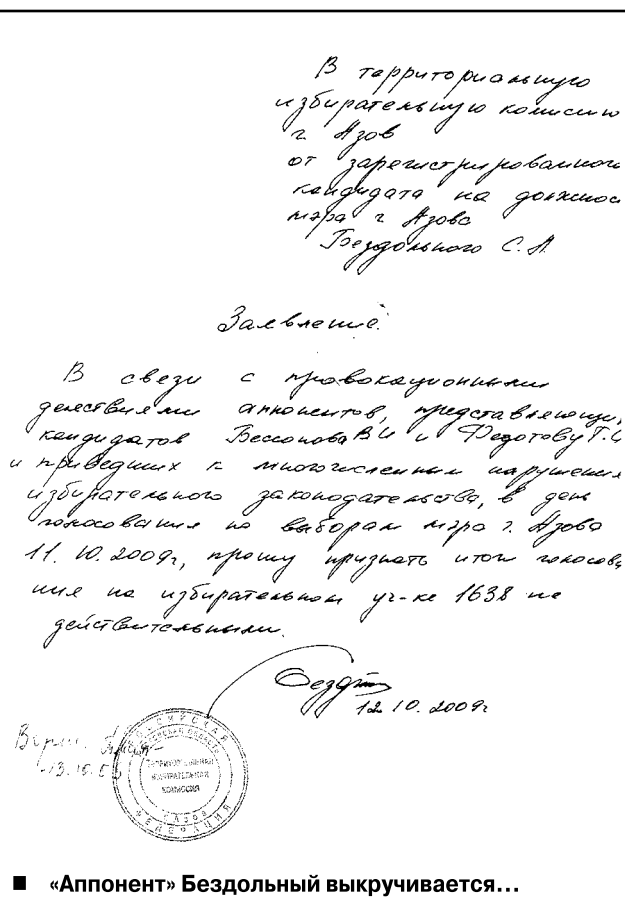 В территориальную
избирательную комиссию
г. Азов
от зарегистрированного
кандидата на должнос
мэра г. Азова
Бездольного С.А.
Заявление.
В связи с провокационными
действиями аппонентов, представляющих
кандидатов Бессонова В И и Федотову Т.
и приведших к многочисленным нарушениям
избирательного законодательства, в день
голосования по выборам мэра г. Азова
11.10.2009г, прошу признать итоги голосова
ния на избирательном уч-ке 1638 не
действительными.
12.10.2009г
Верно.
13.10.
РОССИЙСКАЯ ФЕДЕРАЦИЯ
ТЕРРИТОРИАЛЬНАЯ
ИЗБИРАТЕЛЬНАЯ
КОМИССИЯ
■ «Аппонент» Бездольный выкручивается…